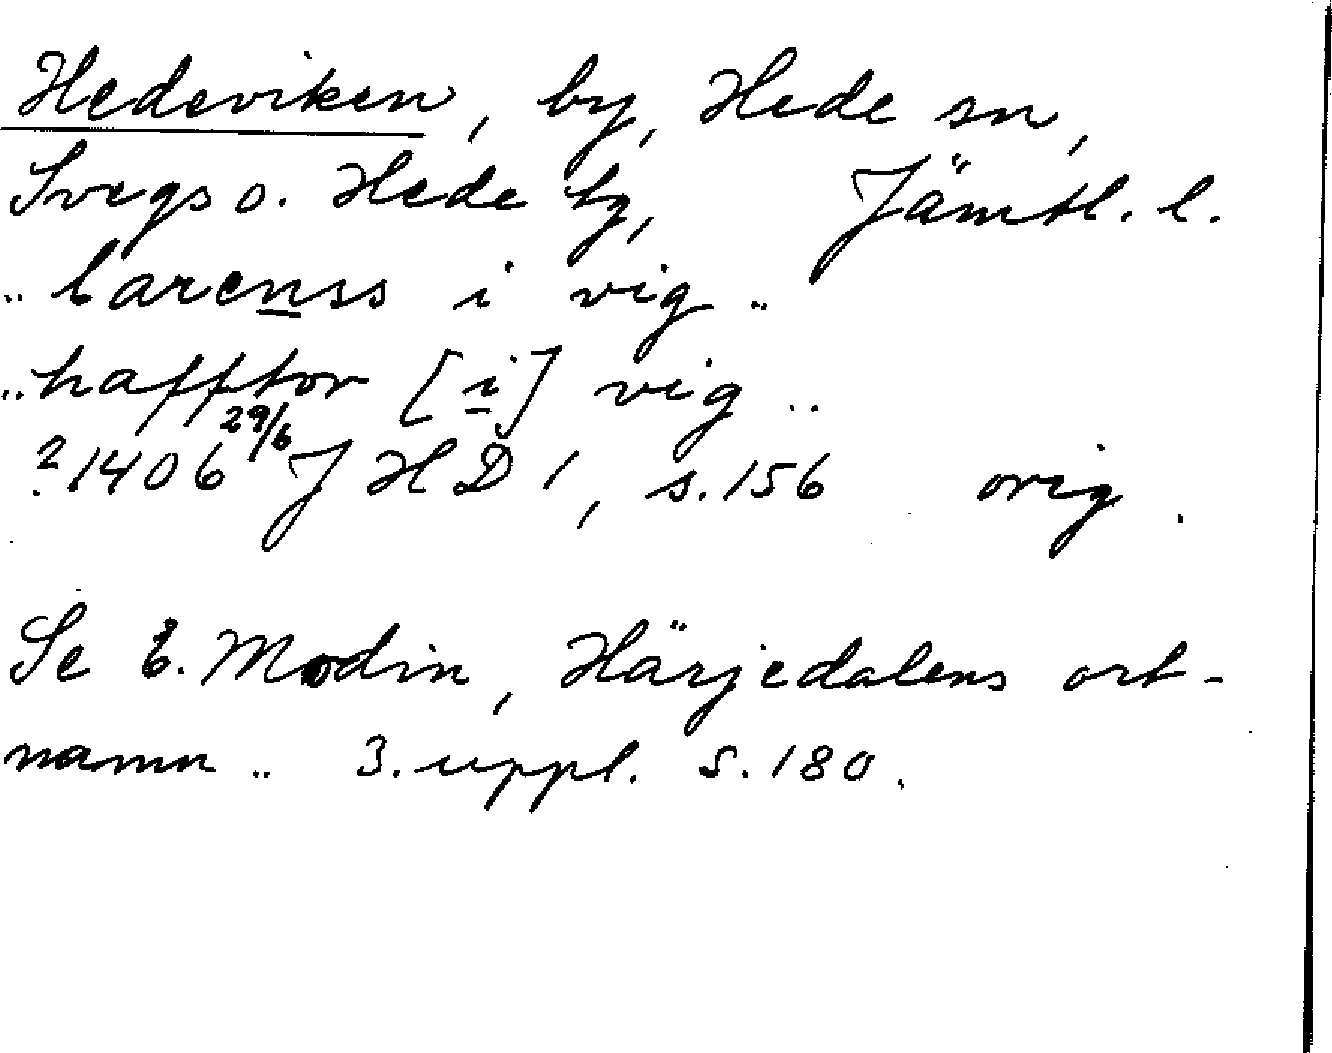 Hedeviken, by, Hede sn,
Svegs o. Hede tg, Jämtl. l.
.. larenss i vig ..
.. hafftor [i] vig ..
? 1406 29/6 JHD 1, s. 156 orig.
Se E. Modin, Härjedalens ort-
namn .. 3. uppl. s. 180.